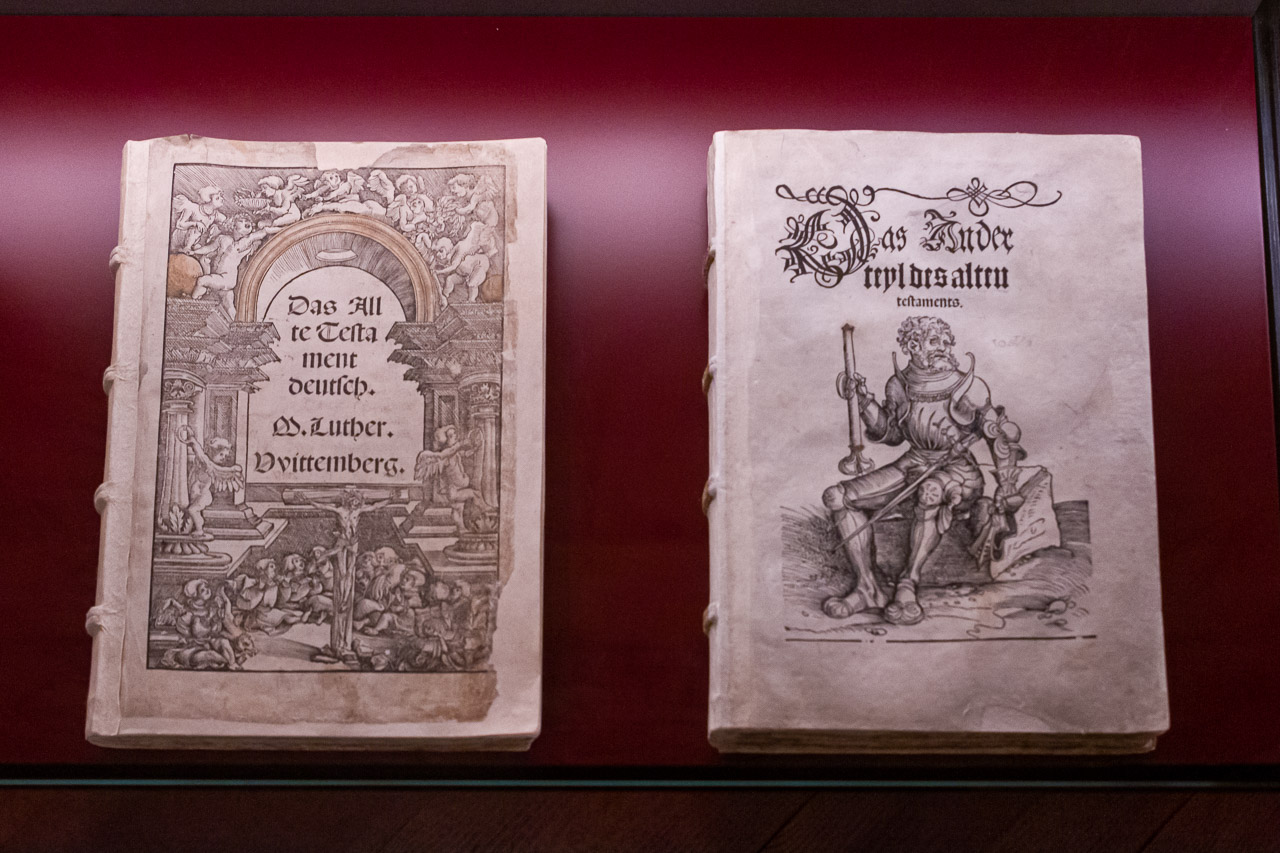 Das All
te Testa
ment
deutsch.
M. Luther.
Vvittemberg.
Das Ander
teyl des alten
testaments.